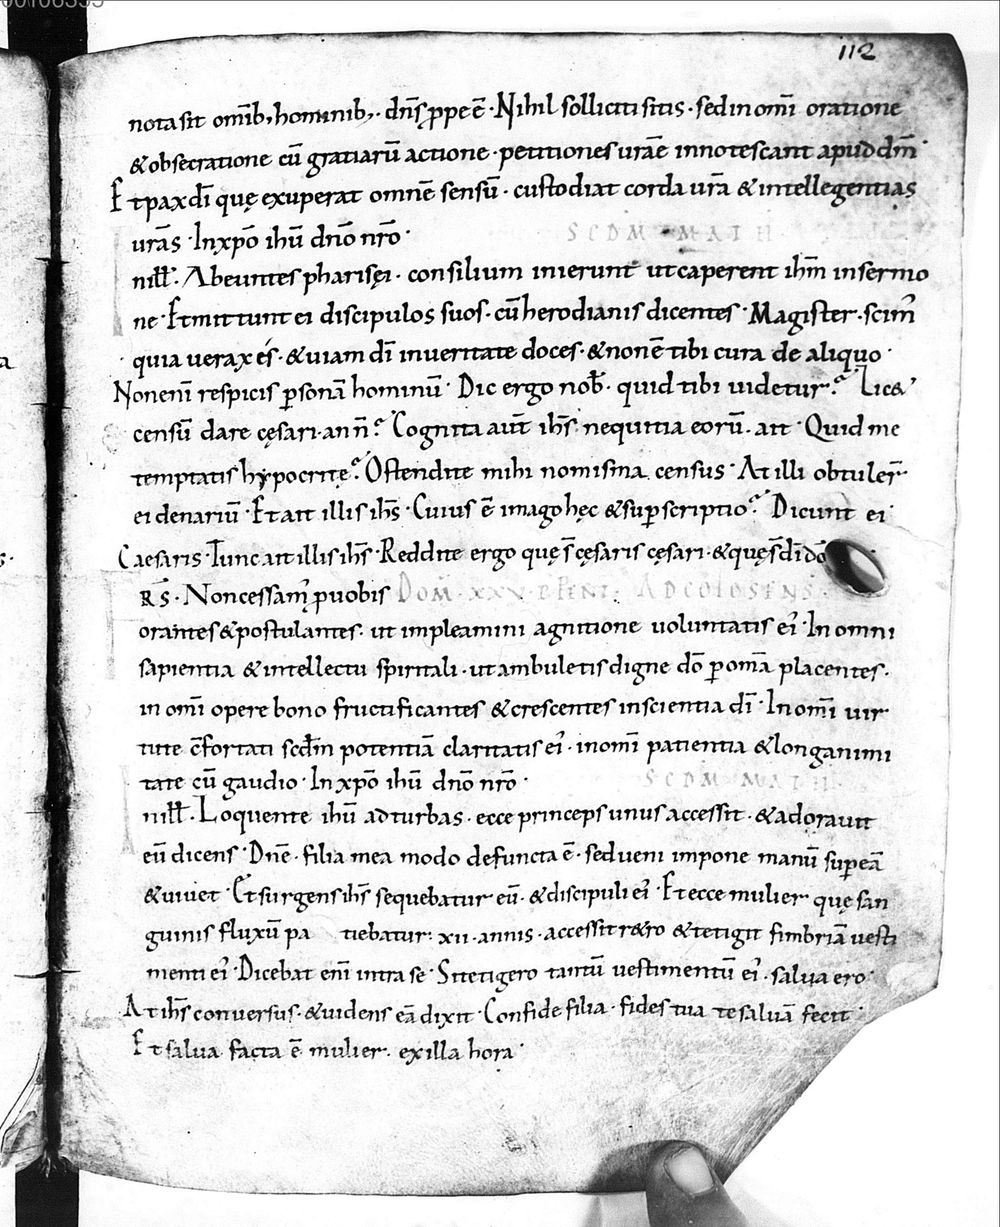 00106355
112
nota sit omībꝫ hominibꝫ. dn̄s ꝓpe ē. Nihil solliciti sitis. sed in omī oratione
& obsecratione cū gratiarū actione. petitiones urāe innotescant apud dm̄.
Et pax dī quę exuperat omnē sensū. custodiat corda urā & intellegentias
urās. In xp̄o ihū dn̄o nr̄o. SCDM MATH
nill̄. Abeuntes pharisęi. consilium inierunt ut caperent ihm̄ in sermo
ne. Et mittunt ei discipulos suos. cū herodianis dicentes. Magister. scim᷒
quia uerax és. & uiam dī in ueritate doces. & non ē tibi cura de aliquo.
Non enī respicis ꝑsonā hominū. Dic ergo nob̄. quid tibi uidetur? Lic&
censū dare cęsari. an n̄? Cognita aūt ihs̄ nequitia eorū. ait. Quid me
temptatis hypocritę? Ostendite mihi nomisma census. At illi obtuler̄
ei denariū. Et ait illis ihs̄. Cuius ē imago hęc & suꝑscriptio? Dicunt ei
Caesaris. Tunc ait illis ihs̄. Reddite ergo quę s̄ cęsaris cęsari. & quę s̄ dī dō
RS̄. Non cessam᷒ ꝓ uobis DOM XXV P PENT AD COLOSENS
orantes & postulantes. ut impleamini agnitione uoluntatis ei᷒. In omni
sapientia & intellectu spiritali. ut ambuletis digne dō ꝑ omā placentes.
in omī opere bono fructificantes & crescentes in scientia dī. In omī uir
tute c̄fortati scdm̄ potentiā claritatis ei᷒. in omī patientia & longanimi
tate cū gaudio. In xp̄o ihū dn̄o nr̄o. SCDM MATH
nill̄. Loquente ihū ad turbas. ecce princeps unus accessit. & adorauit
eū dicens. Dn̄e. filia mea modo defuncta ē. sed ueni impone manū suꝑ eā
& uiuet. Et surgens ihs̄ sequebatur eū. & discipuli ei᷒. Et ecce mulier quę san
guinis fluxū pa tiebatur. xii. annis. accessit r&ro & tetigit fimbriā uesti
menti ei᷒. Dicebat enī intra se. Si tetigero tantū uestimentū ei᷒. salua ero.
At ihs̄ conuersus. & uidens eā dixit. Confide filia. fides tua te saluā fecit.
Et salua facta ē mulier. ex illa hora.